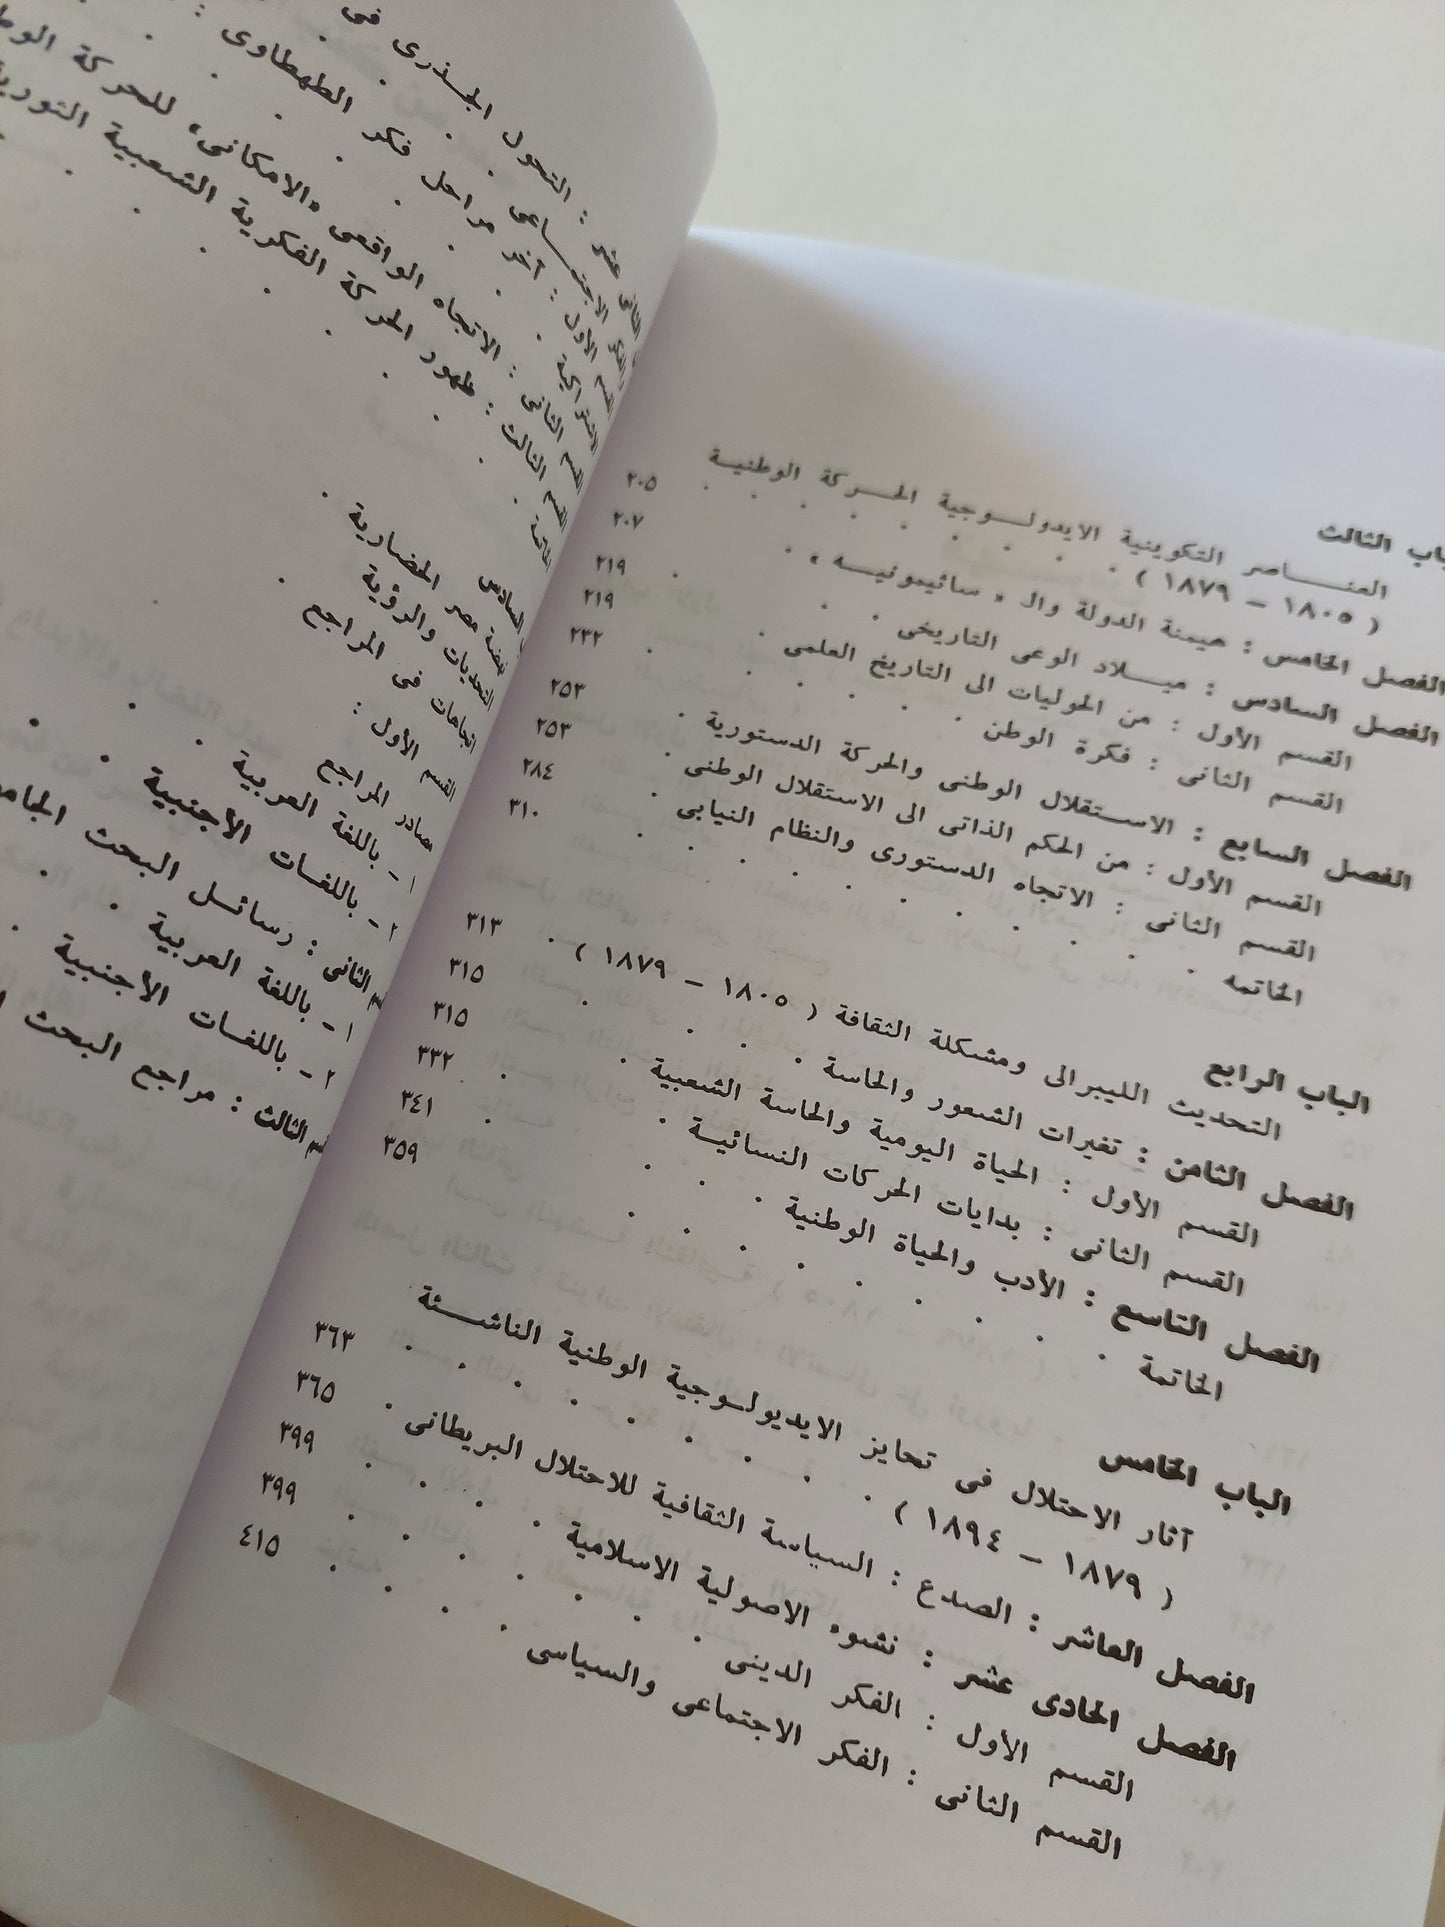 الباب الثالث
العنـــاصر التكوينية الايدولـــوجية الحـــركة الوطنيـــة
( ١٨٠٥ – ١٨٧٩ )
٢٠٥
الفصل الخامس : هيمنة الدولة والـ « سانيمونيـــه » .
٢٠٧
الفصل السادس : ميـــلاد الوعى التاريخى
٢١٩
القسم الأول : من الحوليات الى التاريخ العلمى
٢١٩
القسم الثانى : فكرة الوطن
٢٣٢
الفصل السابع : الاســـتقلال الوطنى والحركة الدستورية
٢٥٣
القسم الأول : من الحكم الذاتى الى الاستقلال الوطنى
٢٥٣
القسم الثانى : الاتجاه الدستورى والنظام النيابى
٢٨٤
الخاتمه
٣١٠
الباب الرابع
التحديث الليبرالى ومشكلة الثقافة ( ١٨٠٥ – ١٨٧٩ )
٣١٣
الفصل الثامن : تغيرات الشعور والحاسة
٣١٥
القسم الأول : الحياة اليومية والحاسة الشعبية
٣١٥
القسم الثانى : بدايات الحركات النسائيـــة
٣٣٢
الفصل التاسع : الأدب والحياة الوطنية
٣٤١
الخاتمة
٣٥٩
الباب الخامس
آثار الاحتلال فى تحايز الايديولـــوجية الوطنية الناشـــئة
( ١٨٧٩ – ١٨٩٤ )
٣٦٣
الفصل العاشر : الصدع : السياسة الثقافية للاحتلال البريطانى
٣٦٥
الفصل الحادى عشر : نشوء الاصولية الاسلامية
٣٩٩
القسم الأول : الفكر الدينى
٣٩٩
القسم الثانى : الفكر الاجتماعى والسياسى
٤١٥
الثانى عشر : التحول الجـــذرى فى
والفكر الاجتمـــاعى
القسم الأول : آخر مراحل فكر الطهطاوى :
القسم الثانى : الاتجاه الواقعى «الامكانى» للحركة
الاشتراكية
القسم الثالث : ظهود الحركة الفكرية الشعبية
الخاتمة
السادس
نهضة مصر الحضارية
التحديات والرؤية
اتجاهات فى المراجع
القسم الأول :
مصادر المراجع
١ – باللغة العربية
٢ – باللغـــات الأجنبية
القسم الثانى : رسائـــل البحث
١ – باللغة العربية
٢ – باللغـــات الأجنبية
القسم الثالث : مراجع البحث